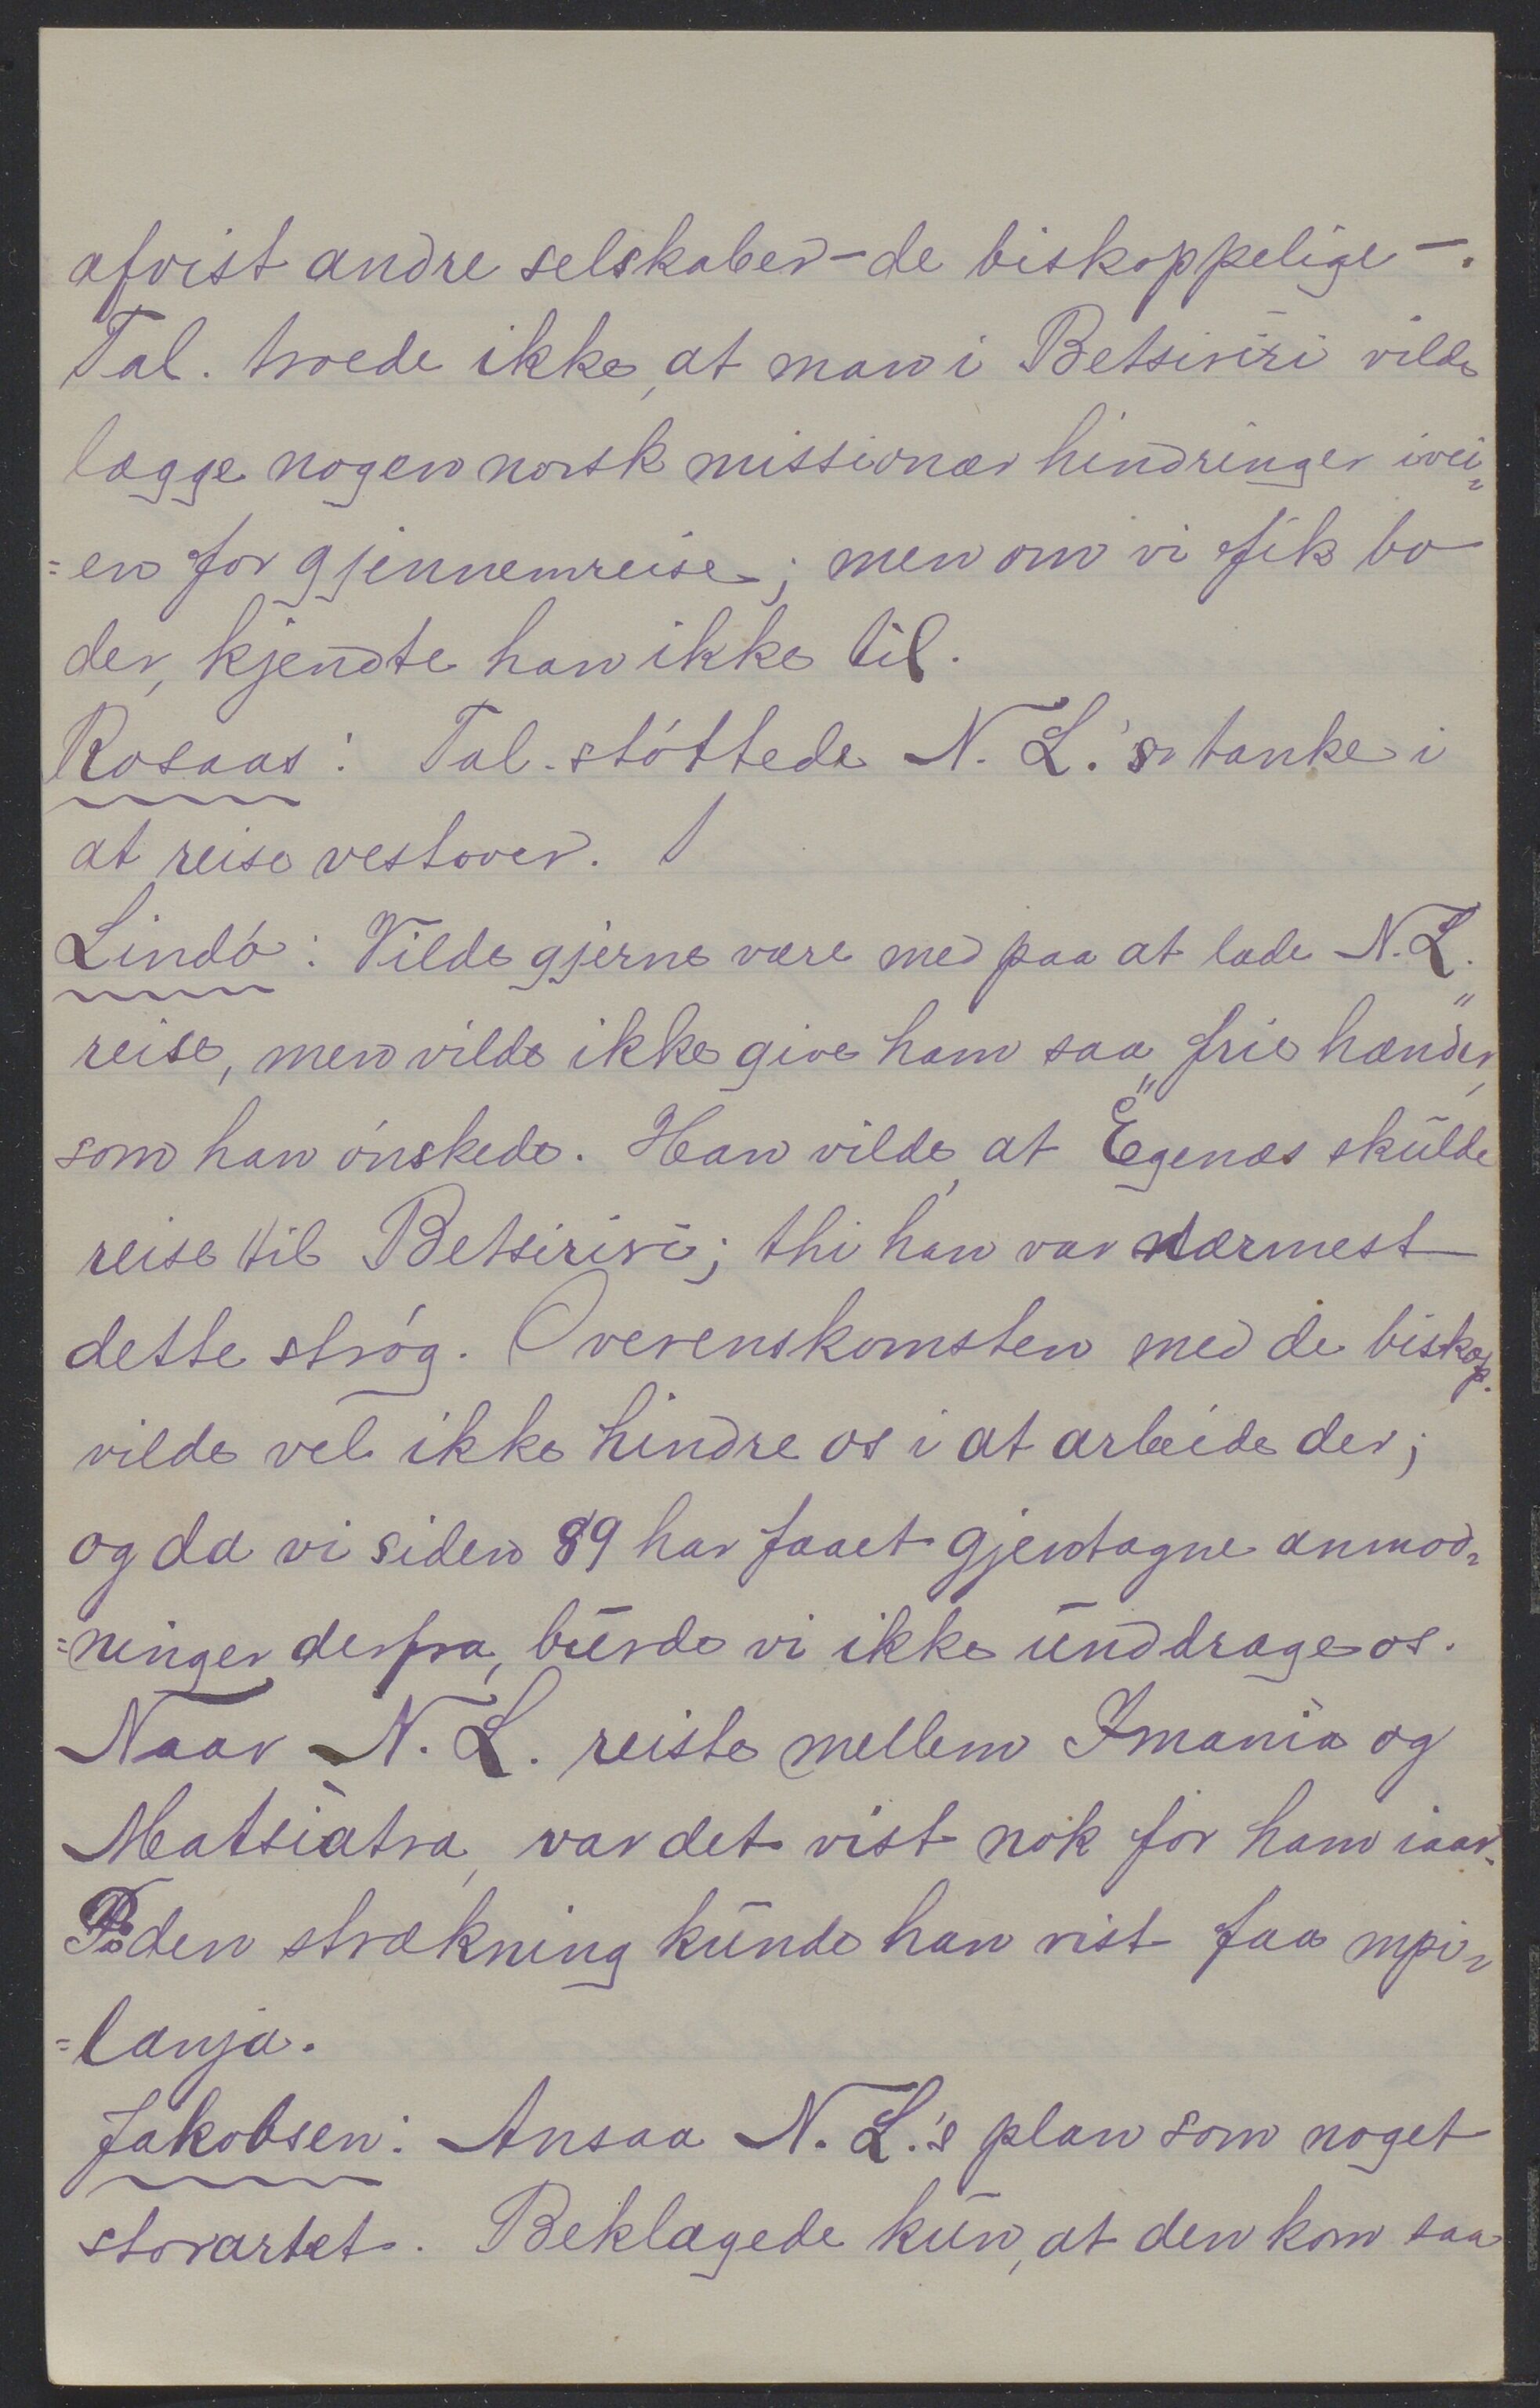 afvist andre selskaber - de biskoppelige -.
Tal. troede ikke, at man i Betsiriri vilde
lægge nogen norsk missionær hindringer ivei=
=en for gjennemreise; men om vi fik bo
der, kjendte han ikke til.
Rosaas: Tal. støttede N. L.'s tanke i
at reise vestover.
Lindø: Vilde gjerne være med paa at lade N. L.
reise, men vilde ikke give ham saa „frie hænder“,
som han ønskede. Han vilde, at Egenæs skulde
reise til Betsiriri; thi han var nærmest
dette strøg. Overenskomsten med de biskop.
vilde vel ikke hindre os i at arbeide der;
og da vi siden 89 har faaet gjentagne anmod=
=ninger derfra, burde vi ikke unddrage os.
Naar N. L. reiste mellem Imania og
Matsiatra, var det vist nok for ham iaar.
Paa den strækning kunde han vist faa mpi=
=lanja.
Jakobsen: Ansaa N. L.'s plan som noget
storartet. Beklagede kun, at den kom saa